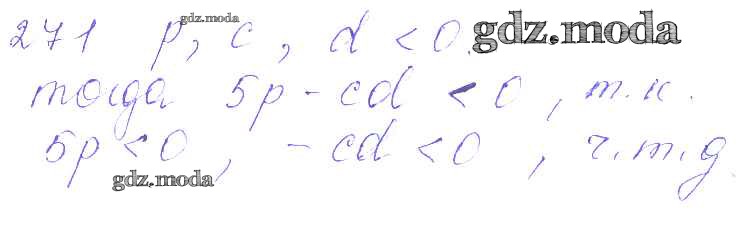 gdz.moda
271 p, c, d < 0. gdz.moda
тогда 5p - cd < 0, т.к.
5p < 0, - cd < 0, ч.т.д.
gdz.moda